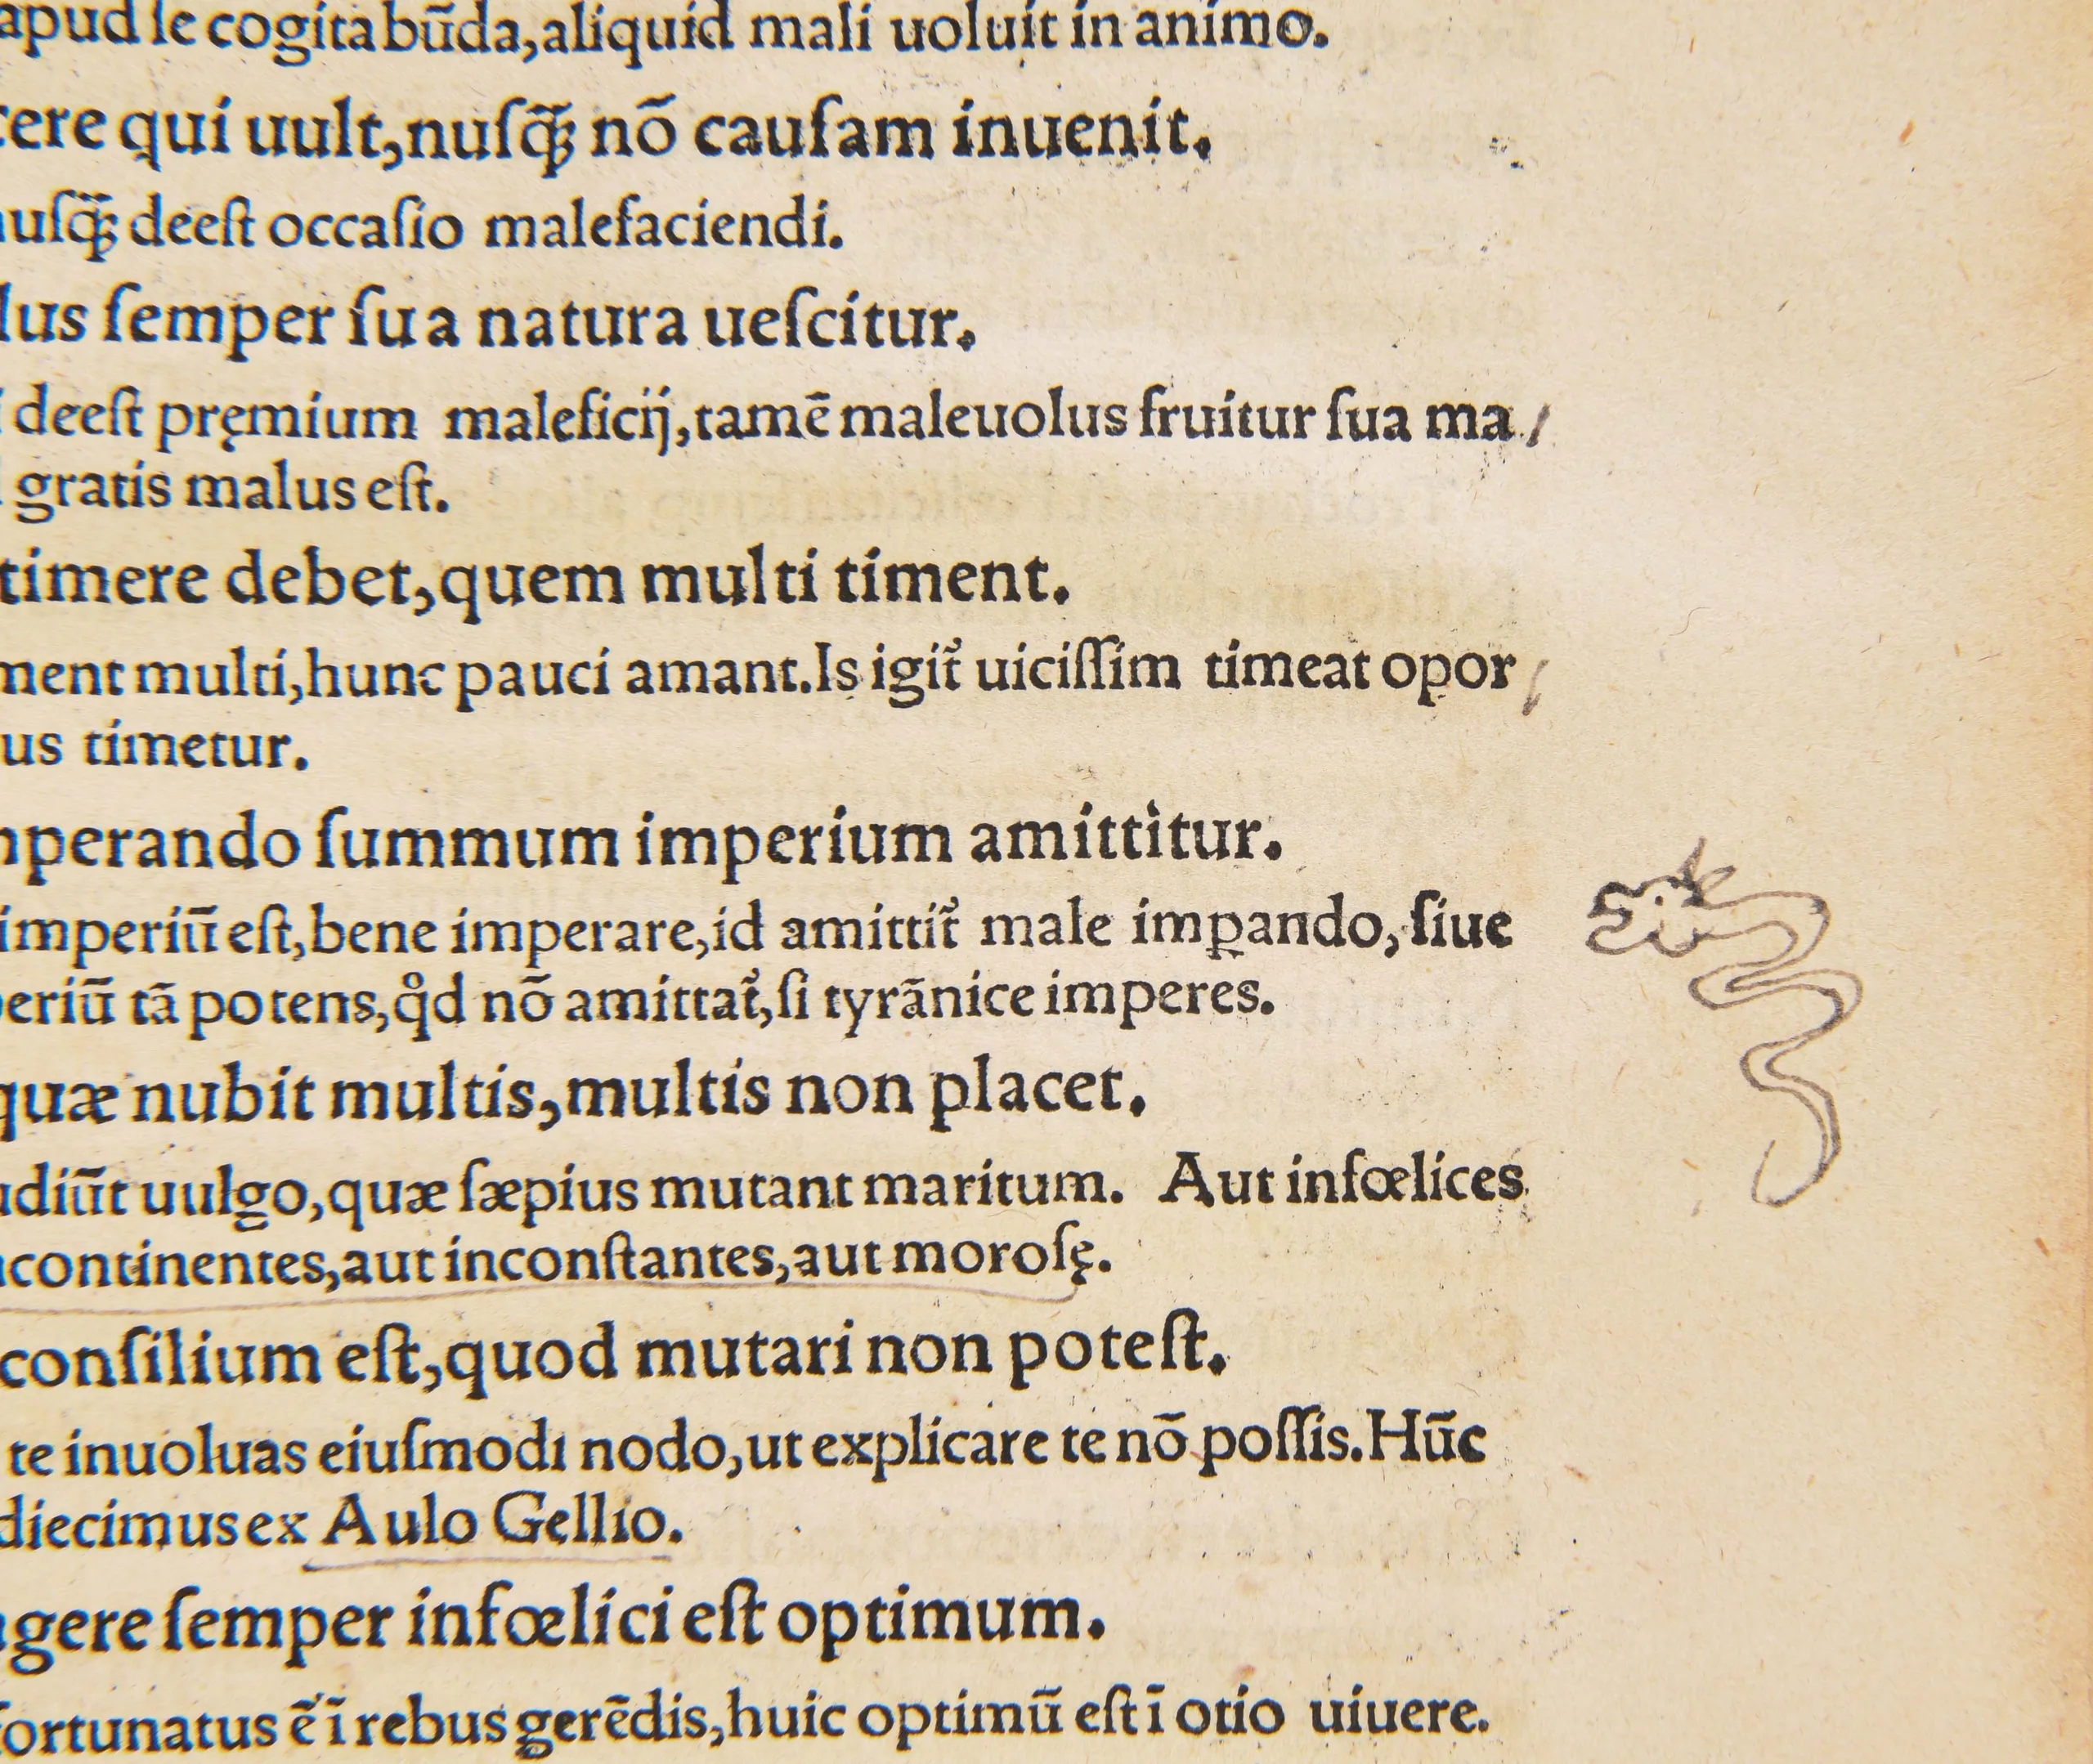 apud ſe cogitabūda,aliquid mali uoluit in animo.
cere qui uult,nuſq̃ꝫ nō cauſam inuenit.
nuſq̃ꝫ deeſt occaſio malefaciendi.
lus ſemper ſua natura ueſcitur.
deeſt pręmium maleficij,tamē maleuolus fruitur ſua ma/
gratis malus eſt.
timere debet,quem multi timent.
ment multi,hunc pauci amant.Is igit̃ uiciſſim timeat opor/
us timetur.
mperando ſummum imperium amittitur.
imperiū eſt,bene imperare,id amittit̃ male imꝑando,ſiue
periū tā potens,qd̊ nō amittat̃,ſi tyrānice imperes.
quæ nubit multis,multis non placet.
udiūt uulgo,quæ ſæpius mutant maritum. Aut infœlices
continentes,aut inconſtantes,aut moroſę.
conſilium eſt,quod mutari non poteſt.
te inuoluas eiuſmodi nodo,ut explicare te nō poſſis.Hūc
diecimus ex Aulo Gellio.
gere ſemper infœlici eſt optimum.
fortunatus ē ī rebus gerēdis,huic optimū eſt ī otio uiuere.